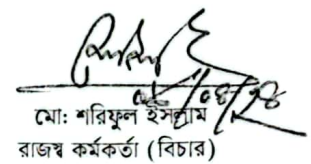 মো: শরিফুল ইসলাম
রাজস্ব কর্মকর্তা (বিচার)